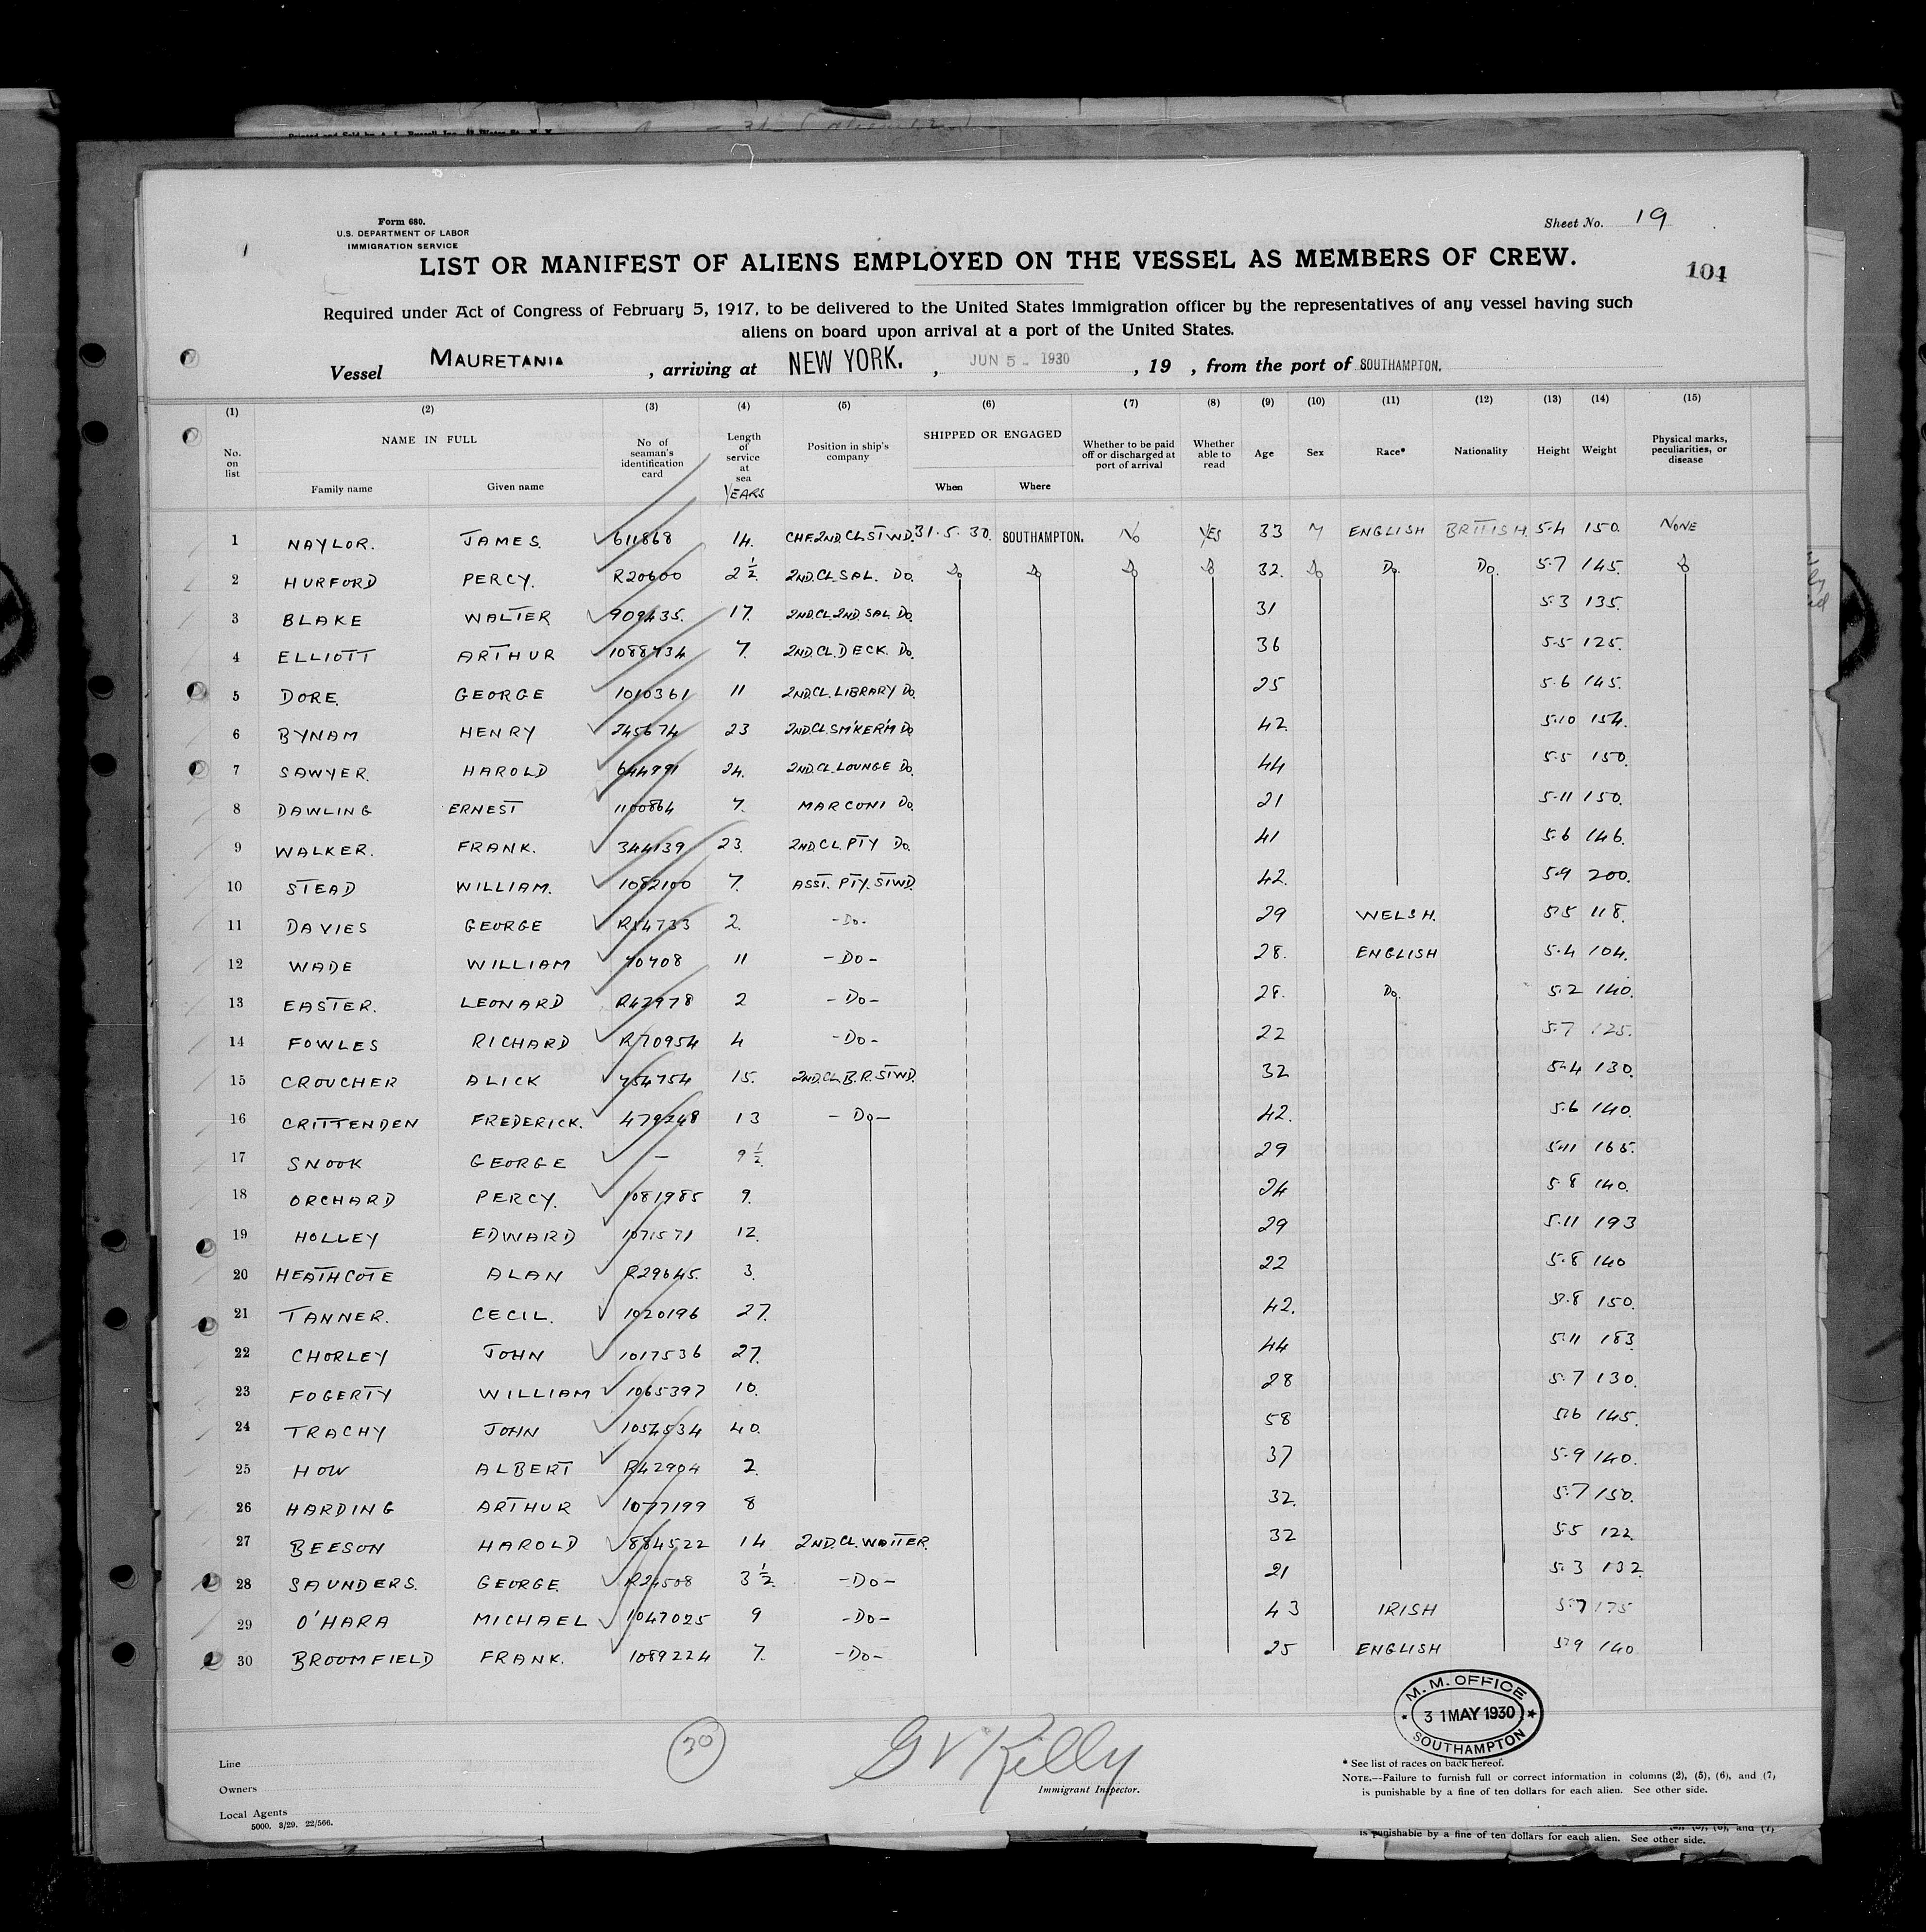 Form 680.
U.S. DEPARTMENT OF LABOR
IMMIGRATION SERVICE
Sheet No. 19
LIST OR MANIFEST OF ALIENS EMPLOYED ON THE VESSEL AS MEMBERS OF CREW.
104
Required under Act of Congress of February 5, 1917, to be delivered to the United States immigration officer by the representatives of any vessel having such
aliens on board upon arrival at a port of the United States.
Vessel MAURETANIA , arriving at NEW YORK. , JUN 5 - 1930 , 19 , from the port of SOUTHAMPTON.
(1) (2) (3) (4) (5) (6) (7) (8) (9) (10) (11) (12) (13) (14) (15)
No. on list NAME IN FULL Family name Given name No of seaman's identification card Length of service at sea YEARS Position in ship's company SHIPPED OR ENGAGED When Where Whether to be paid off or discharged at port of arrival Whether able to read Age Sex Race* Nationality Height Weight Physical marks, peculiarities, or disease
1 NAYLOR. JAMES. 611868 14. CHF.2ND.CL.STWD. 31.5.30. SOUTHAMPTON. No YES 33 M ENGLISH BRITISH. 5.4 150. NONE
2 HURFORD PERCY. R20600 2½ 2ND.CL.SAL. DO. Do Do Do Do 32. Do Do. Do. 5.7 145. Do
3 BLAKE WALTER 909435. 17. 2ND.CL.2ND.SAL. DO. 31 5.3 135.
4 ELLIOTT ARTHUR 1088734 7. 2ND.CL.DECK. DO. 36 5.5 125.
5 DORE. GEORGE 1010361 11 2ND.CL.LIBRARY DO. 25 5.6 145.
6 BYNAM HENRY 245674 23 2ND.CL.SM'KER'M DO 42. 5.10 154.
7 SAWYER. HAROLD 644991 24. 2ND.CL.LOUNGE DO. 44 5.5 150.
8 DAWLING ERNEST 1100864 7. MARCONI DO. 21 5.11 150.
9 WALKER. FRANK. 344139 23. 2ND.CL.PTY DO. 41 5.6 146.
10 STEAD WILLIAM. 1082100 7. ASST. PTY. STWD. 42. 5.9 200.
11 DAVIES GEORGE R54733 2. -DO- 29 WELSH. 5.5 118.
12 WADE WILLIAM 70708 11 -DO- 28. ENGLISH 5.4 104.
13 EASTER. LEONARD R42978 2 -DO- 28. Do. 5.2 140.
14 FOWLES RICHARD R70954 4 -DO- 22 5.7 125.
15 CROUCHER ALICK 754754 15. 2ND.CL.B.R.STWD. 32 5.4 130.
16 CRITTENDEN FREDERICK. 479248 13 -DO- 42. 5.6 140.
17 SNOOK GEORGE - 9½. 29 5.11 165.
18 ORCHARD PERCY. 1081985 9. 24 5.8 140.
19 HOLLEY EDWARD 1071571 12. 29 5.11 193
20 HEATHCOTE ALAN R29645. 3. 22 5.8 140
21 TANNER. CECIL. 1020196 27. 42. 5.8 150.
22 CHORLEY JOHN 1017536 27. 44 5.11 183.
23 FOGERTY WILLIAM 1065397 10. 28 5.7 130.
24 TRACHY JOHN 1054534 40. 58 5.6 145.
25 HOW ALBERT R42904 2. 37 5.9 140.
26 HARDING ARTHUR 1077199 8 32. 5.7 150.
27 BEESON HAROLD 884522 14 2ND.CL.WAITER. 32 5.5 122.
28 SAUNDERS. GEORGE. R24508 3½. -DO- 21 5.3 132.
29 O'HARA MICHAEL 1047025 9 -DO- 43 IRISH 5.7 175
30 BROOMFIELD FRANK. 1089224 7. -DO- 25 ENGLISH 5.9 140
M. M. OFFICE
31 MAY 1930
SOUTHAMPTON
30
G V Killy
Immigrant Inspector.
Line
Owners
Local Agents
5000. 3/29. 22/566.
* See list of races on back hereof.
NOTE.—Failure to furnish full or correct information in columns (2), (5), (6), and (7,
is punishable by a fine of ten dollars for each alien. See other side.
is punishable by a fine of ten dollars for each alien. See other side.